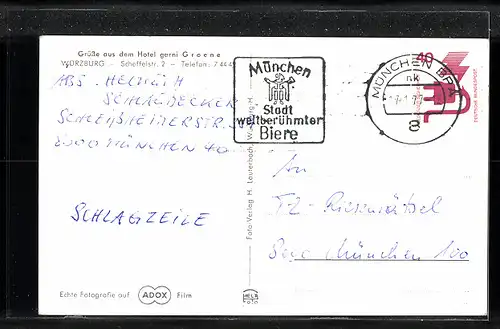 Grüße aus dem Hotel garni Groene
WÜRZBURG – Scheffelstr. 2 – Telefon: 74
ABS. HELMUTH
SCHRÖDECKER
SCHLEIẞHEIMERSTR.
8000 MÜNCHEN 40
SCHLAGZEILE
Echte Fotografie auf ADOX Film
Foto-Verlag H. Lauterbach
München
Stadt
weltberühmter
Biere
MÜNCHEN BPA
8
40
DEUTSCHE BUNDESPOST
An
TZ-Riesenrätsel
8000 München 100